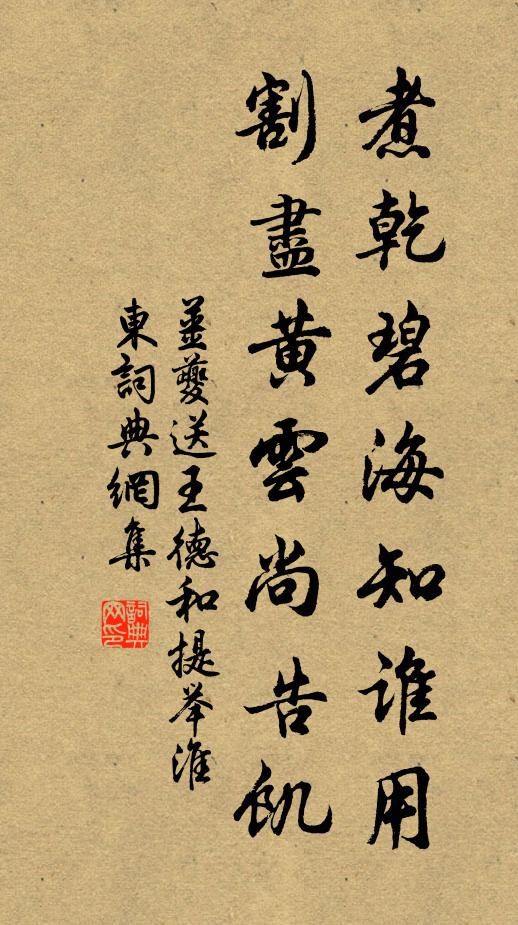 煮乾碧海知誰用
割盡黃雲尚告飢
薑夔送王德和提举淮
東詞典網集
詞典
网印